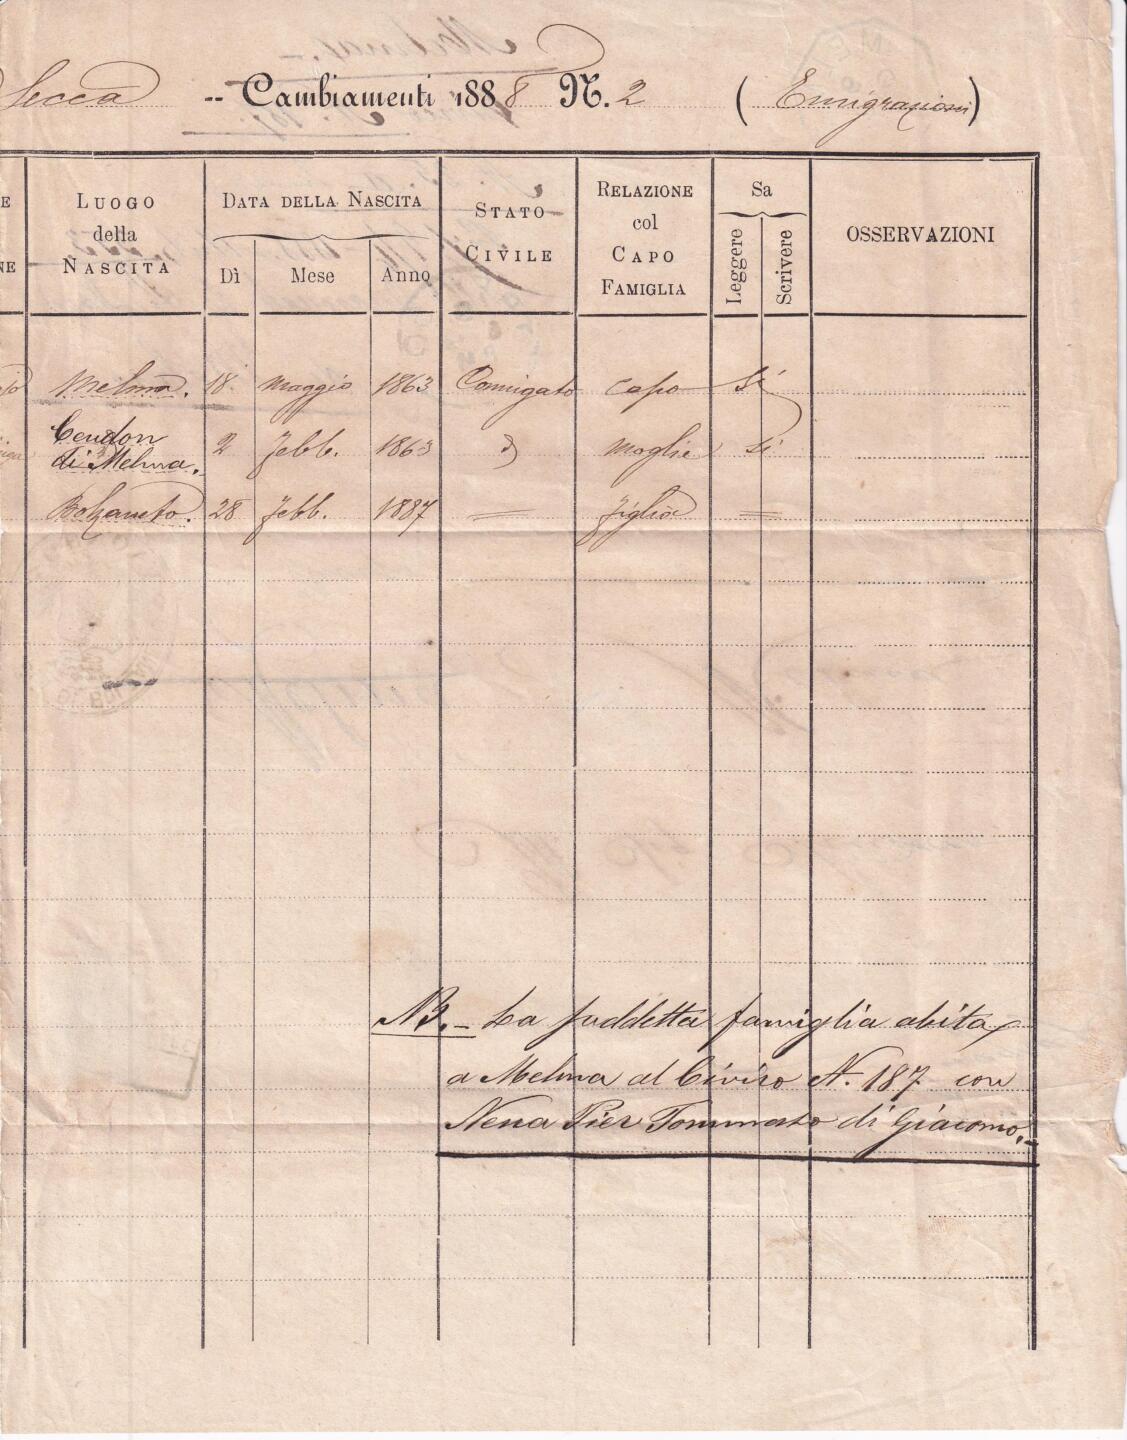 Secca -- Cambiamenti 1888 N. 2 (Emigrazioni)
E
NE
LUOGO
della
NASCITA
DATA DELLA NASCITA
Dì Mese Anno
STATO
CIVILE
RELAZIONE
col
CAPO
FAMIGLIA
Sa
Leggere Scrivere
OSSERVAZIONI
Melma. 18. maggio 1863 Coniugato capo Sí
Cendon
di Melma. 2 Febb. 1863 moglie Sí
Bolzaneto. 28 Febb. 1887 figlio
NB. - La suddetta famiglia abita
a Melma al Civico N. 187 con
Nena Pier Tommaso di Giacomo. -